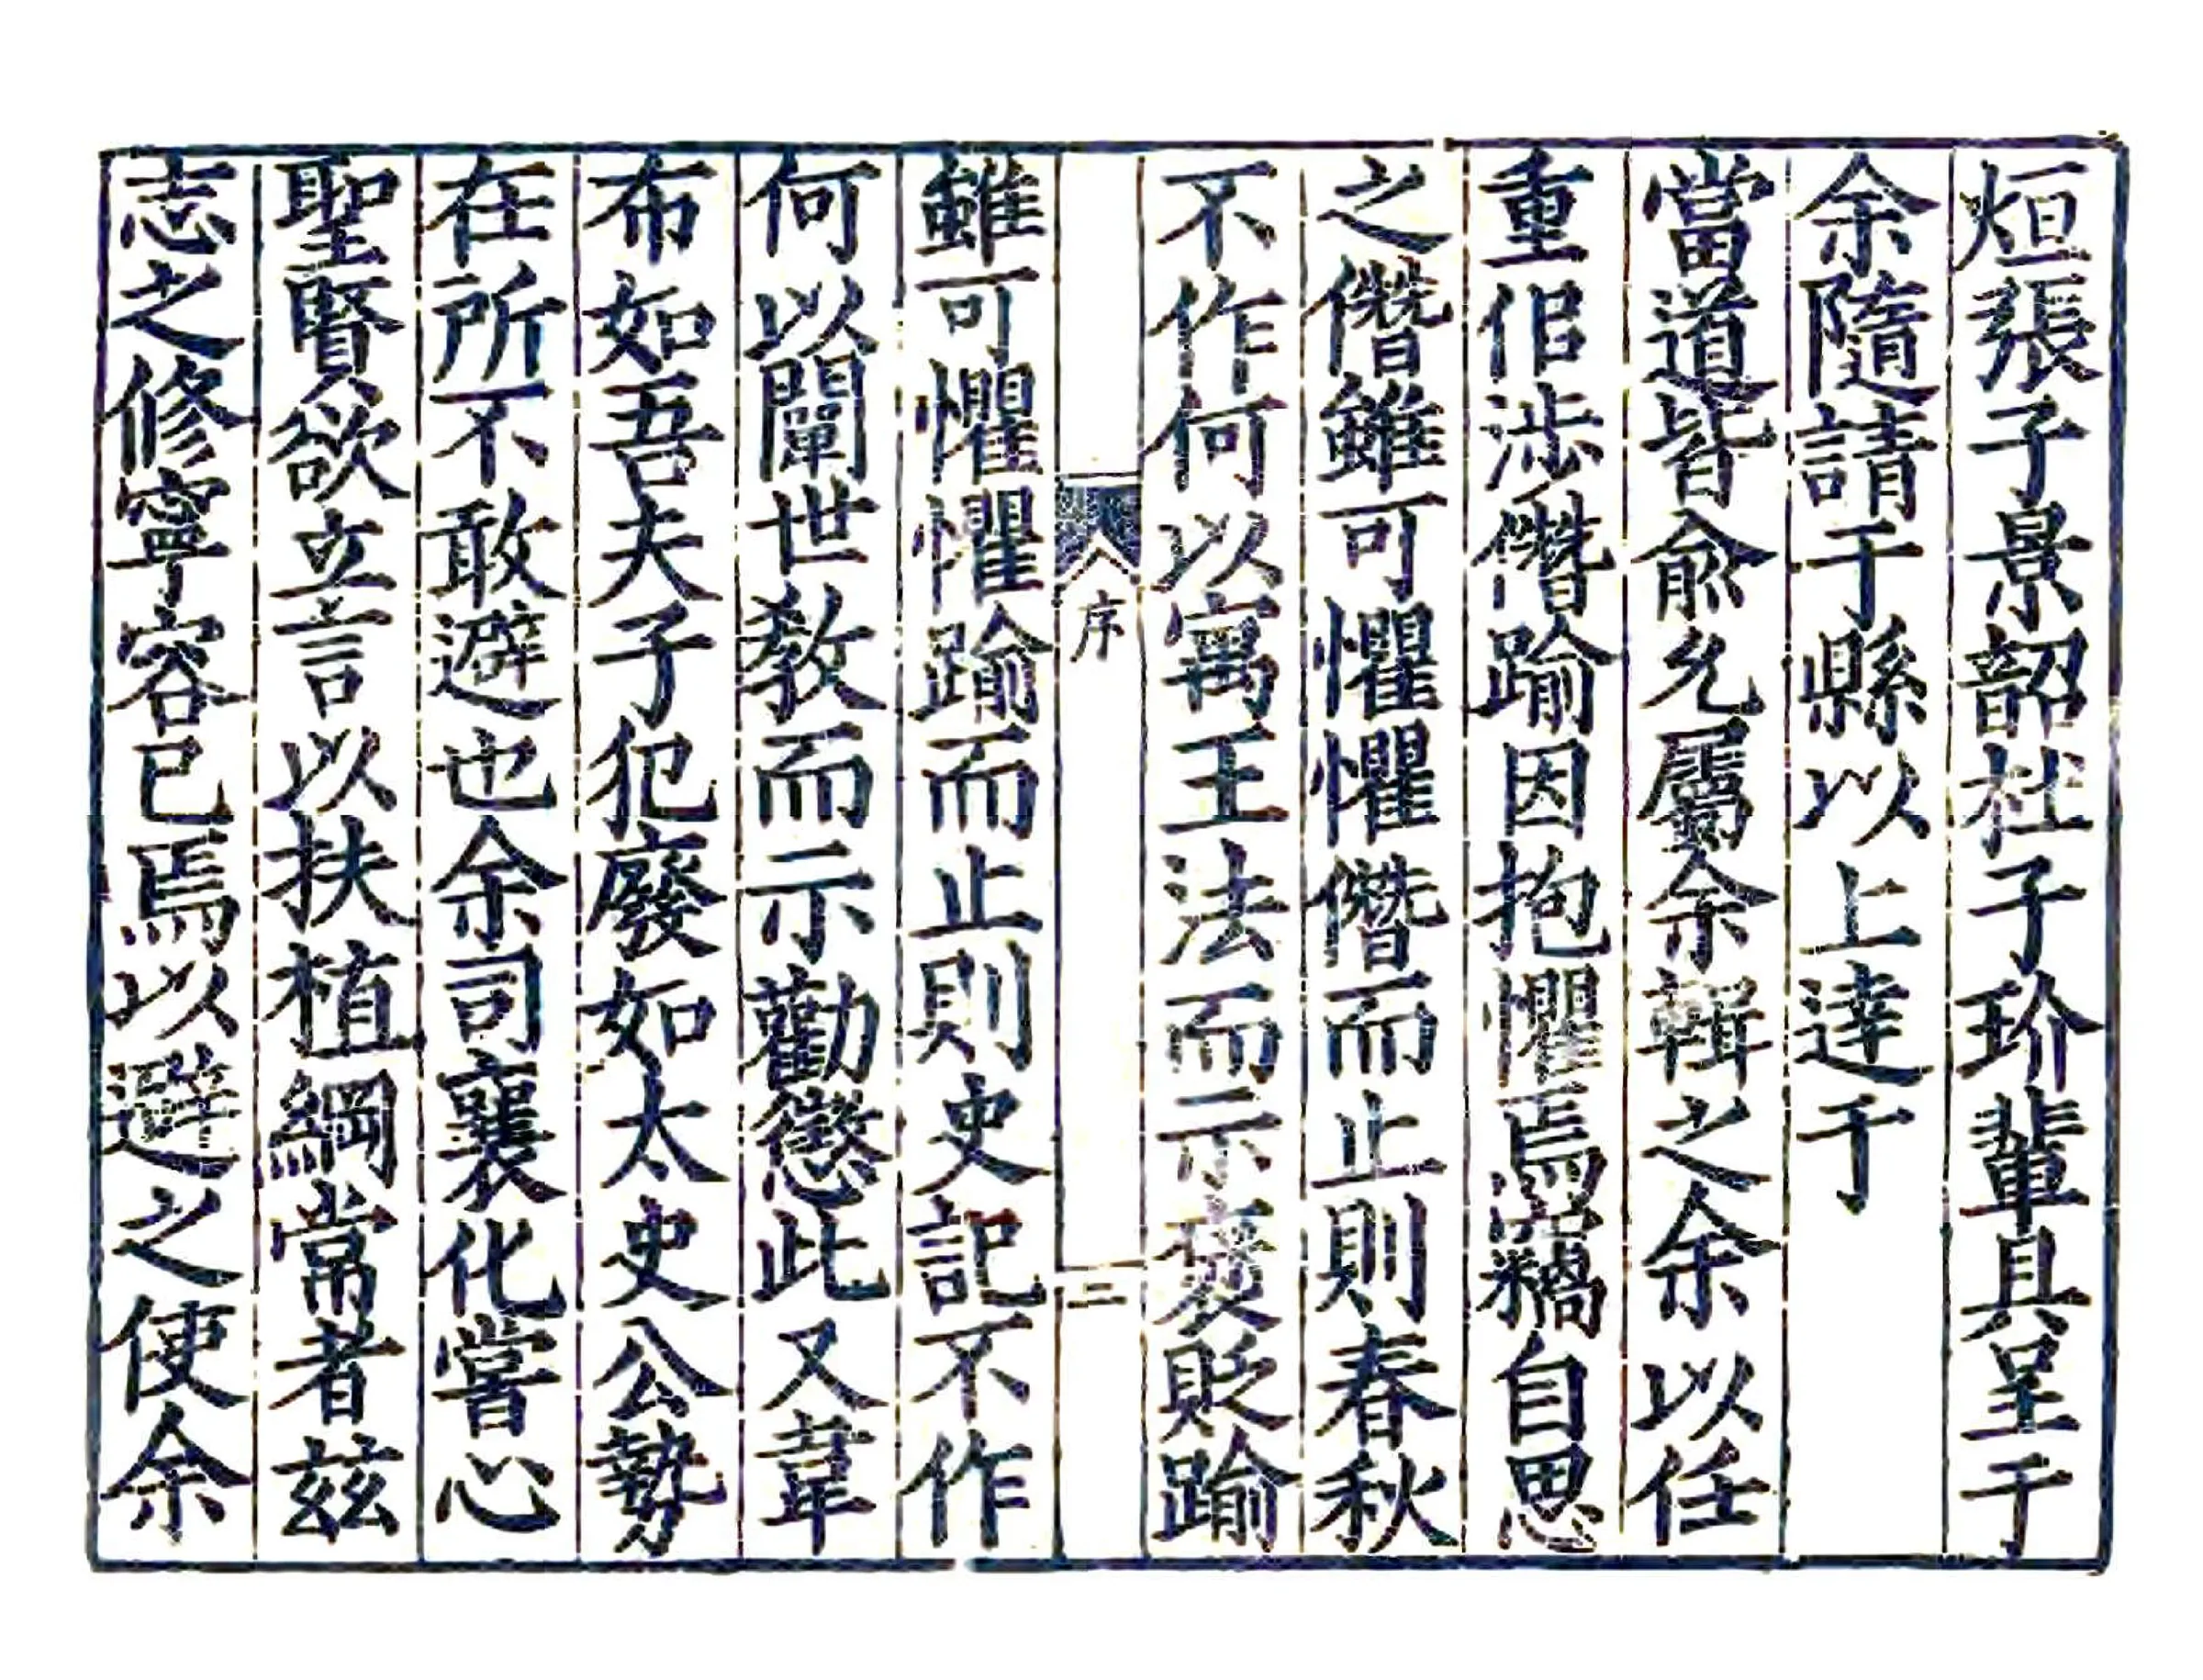 烜張子景韶杜子玠輩具呈于
余隨請于縣以上達于
當道皆俞允屬余輯之余以任
重侰涉僭踰因抱懼焉竊自思
之僭雖可懼懼僭而止則春秋
不作何以寓王法而示褒貶踰
序
二
雖可懼懼踰而止則史記不作
何以闡世教而示勸懲此又韋
布如吾夫子犯廢如太史公勢
在所不敢避也余司襄化嘗心
聖賢欲立言以扶植綱常者兹
志之修寧容已焉以避之使余